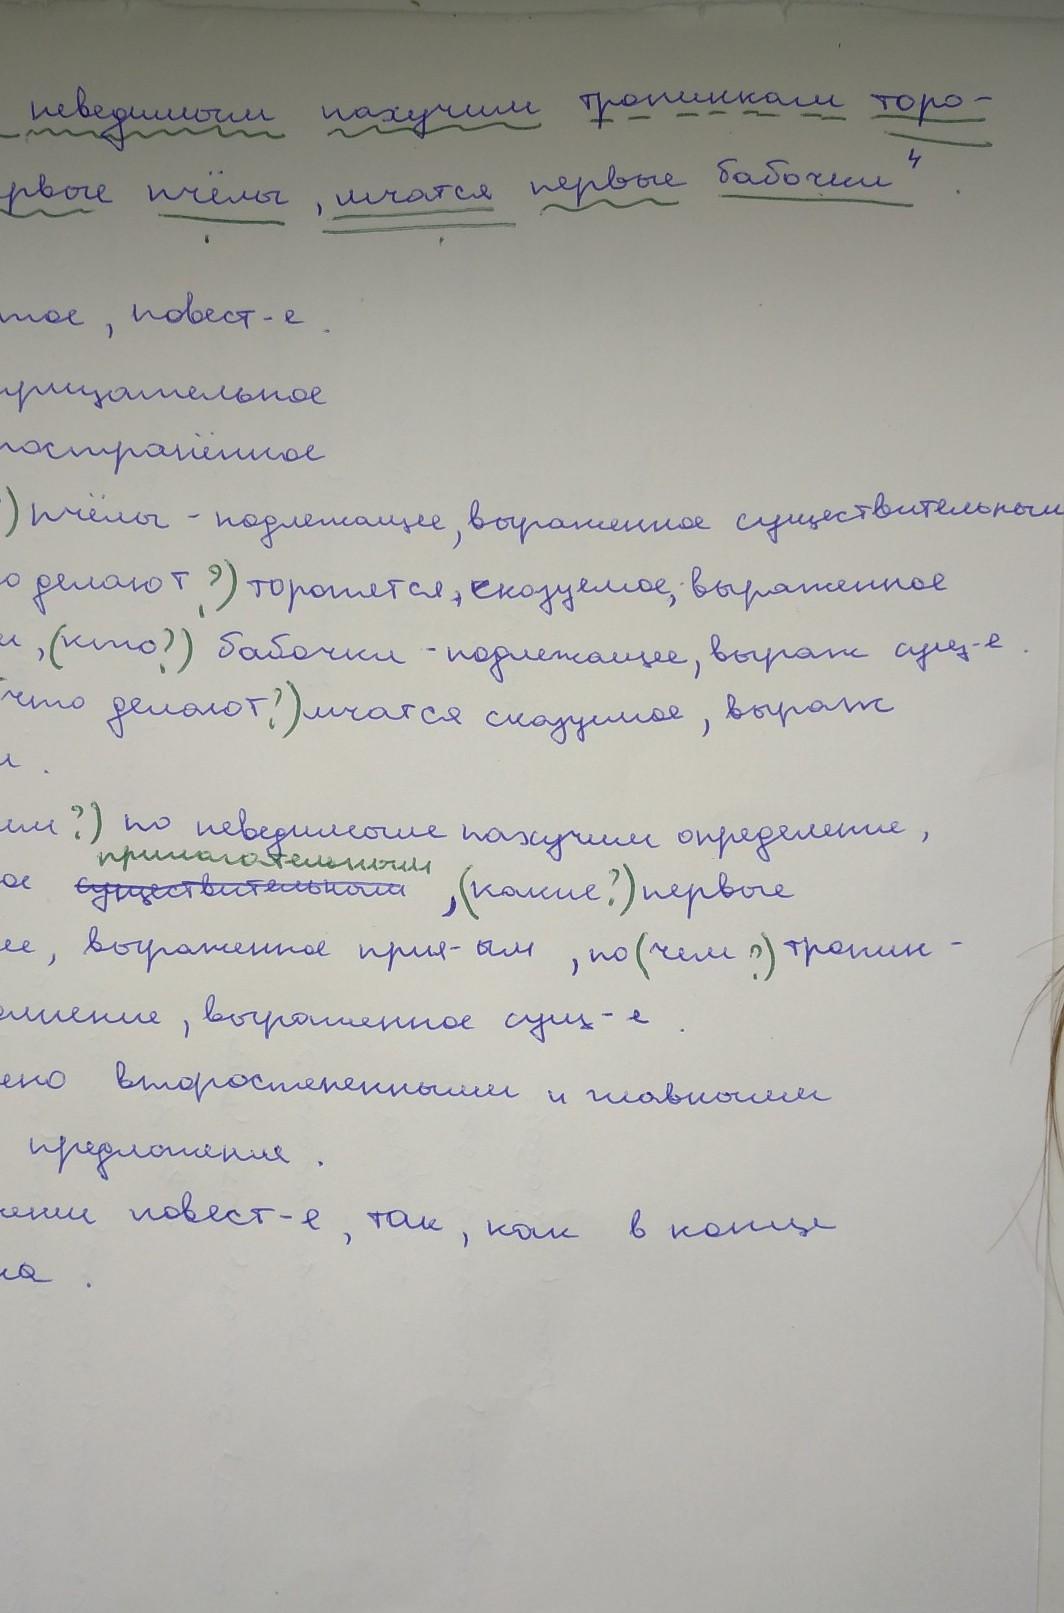 неведимым пахучим тропинкам торо-
рвые пчёлы, мчатся первые бабочки 4.
тое, повест-е.
рицательное
пострапённое
) пчёлы - подлежащее, выраженное существительным
о делают?) торопятся, сказуемое, выраженное
и, (кто?) бабочки - подлежащее, выраж сущ-е.
что делают?) мчатся сказуемое, выраж
и.
им?) по неведимыме пахучим определение,
прилагательным
ое существительным, (какие?) первые
ее, выраженное прил-ым, по (чем?) тропин-
олнение, выраженное сущ-е.
ено второстепенными и главными
предложение.
ении повест-е, так, как в конце
ка.